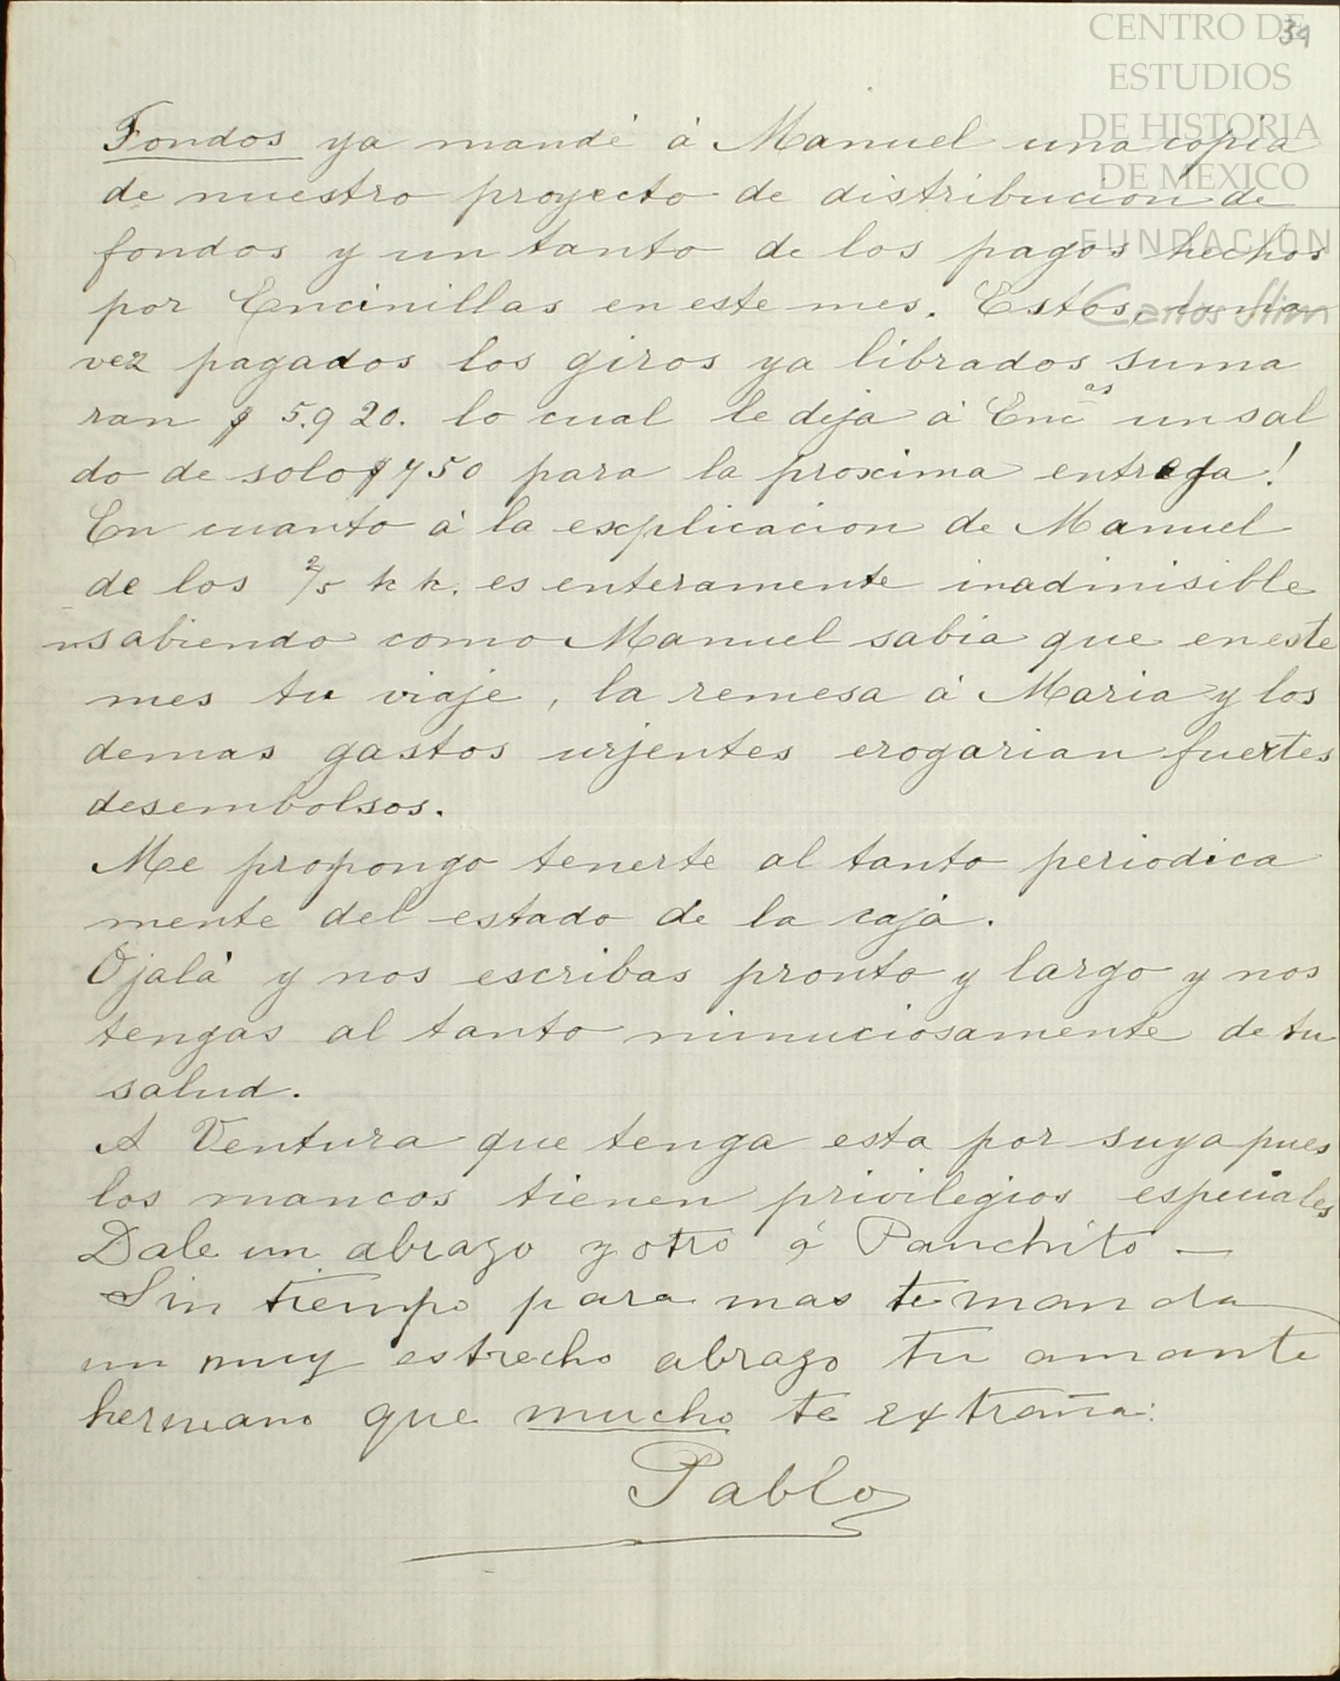 CENTRO DE
ESTUDIOS
DE HISTORIA
DE MEXICO
FUNDACIÓN
Carlos Slim
39
Fondos ya mandé á Manuel una copia
de nuestro proyecto de distribucion de
fondos y un tanto de los pagos hechos
por Encinillas en este mes. Estos, una
vez pagados los giros ya librados suma
ran $ 5.920. lo cual le deja á Encas un sal
do de solo $750 para la proxima entrega!
En cuanto á la explicacion de Manuel
de los 2/5 k k. es enteramente inadmisible
sabiendo como Manuel sabia que en este
mes tu viaje, la remesa á Maria y los
demas gastos urjentes erogarian fuertes
desembolsos.
Me propongo tenerte al tanto periodica
mente del estado de la caja.
Ojalá y nos escribas pronto y largo y nos
tengas al tanto minuciosamente de tu
salud.
A Ventura que tenga esta por suya pues
los mancos tienen privilegios especiales
Dale un abrazo y otro á Panchito —
Sin tiempo para mas te manda
un muy estrecho abrazo tu amante
hermano que mucho te extraña.
Pablo